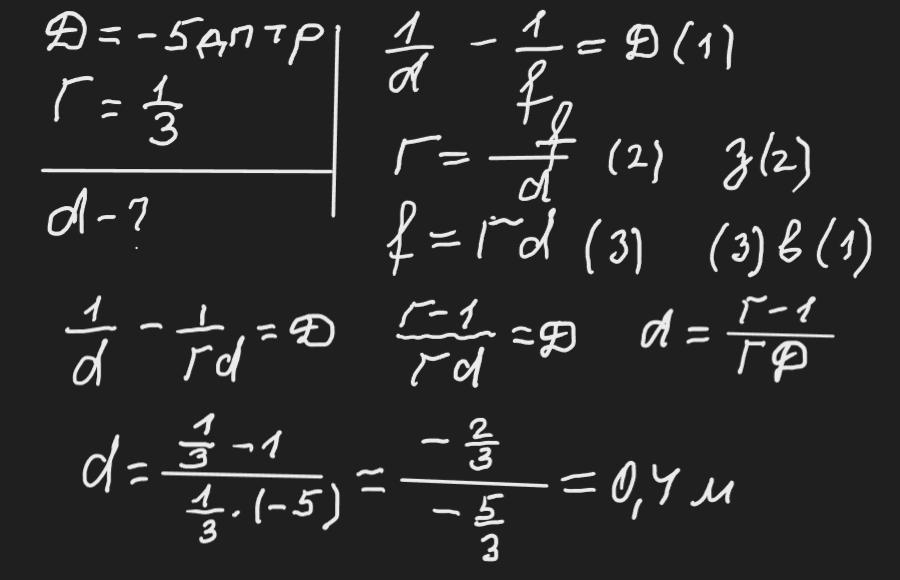 D = -5 дптр
Г = 1/3
d - ?
1/d - 1/f = D (1)
Г = f/d (2) З (2)
f = Гd (3) (3) в (1)
1/d - 1/Гd = D (Г-1)/Гd = D d = (Г-1)/ГD
d = (1/3 - 1)/(1/3 · (-5)) = (-2/3)/(-5/3) = 0,4 м